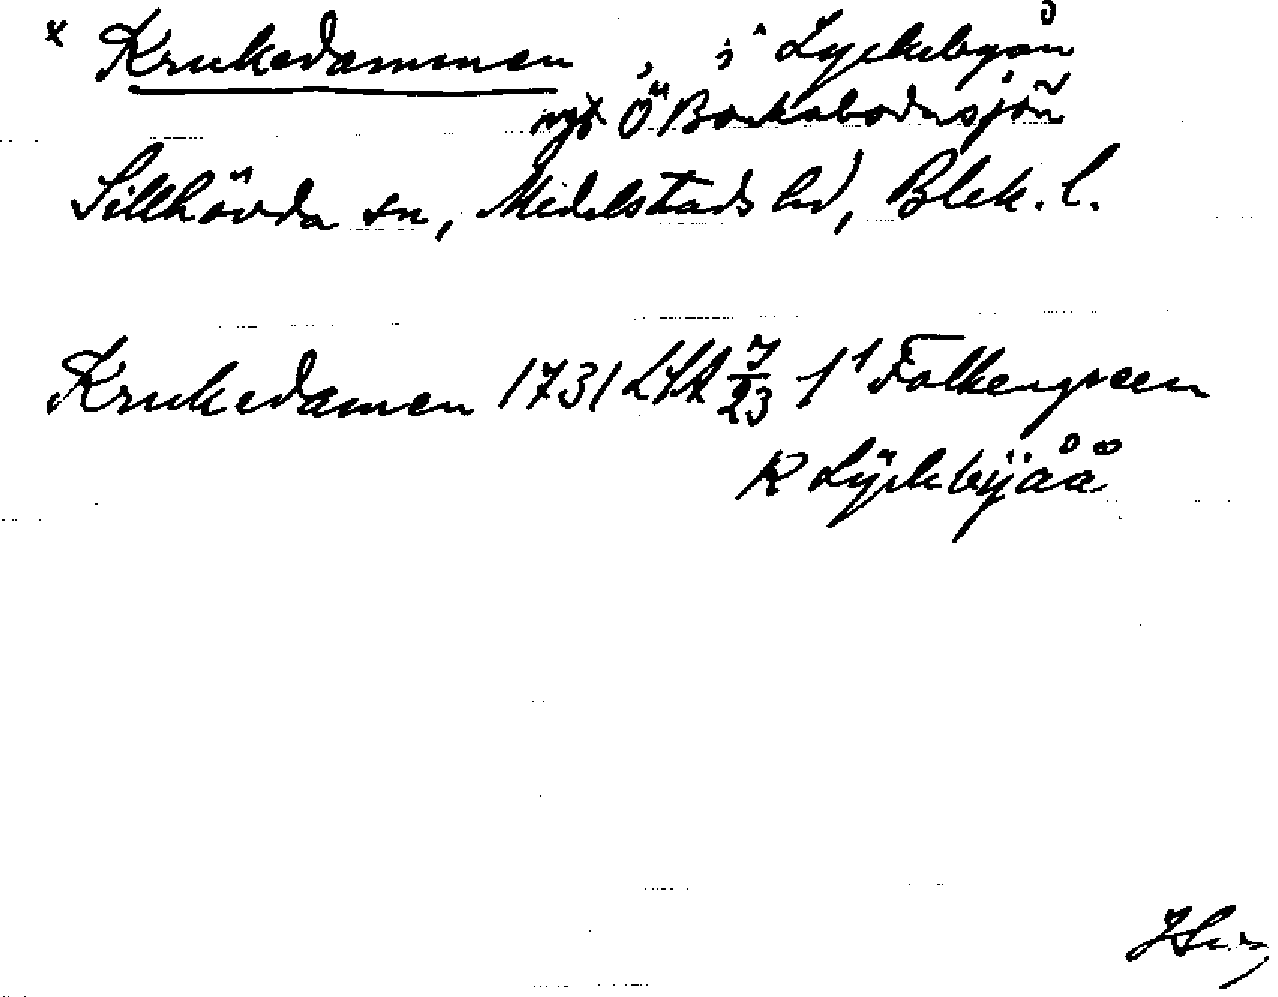 x Krukedammen, i Lyckebyån
Ö Bockabodasjön
Sillhövda sn, Medelstads hd, Blek. l.
Krukedamen 1731 LSA 7/23 f1 Falkengreen
R Lÿckebÿåå